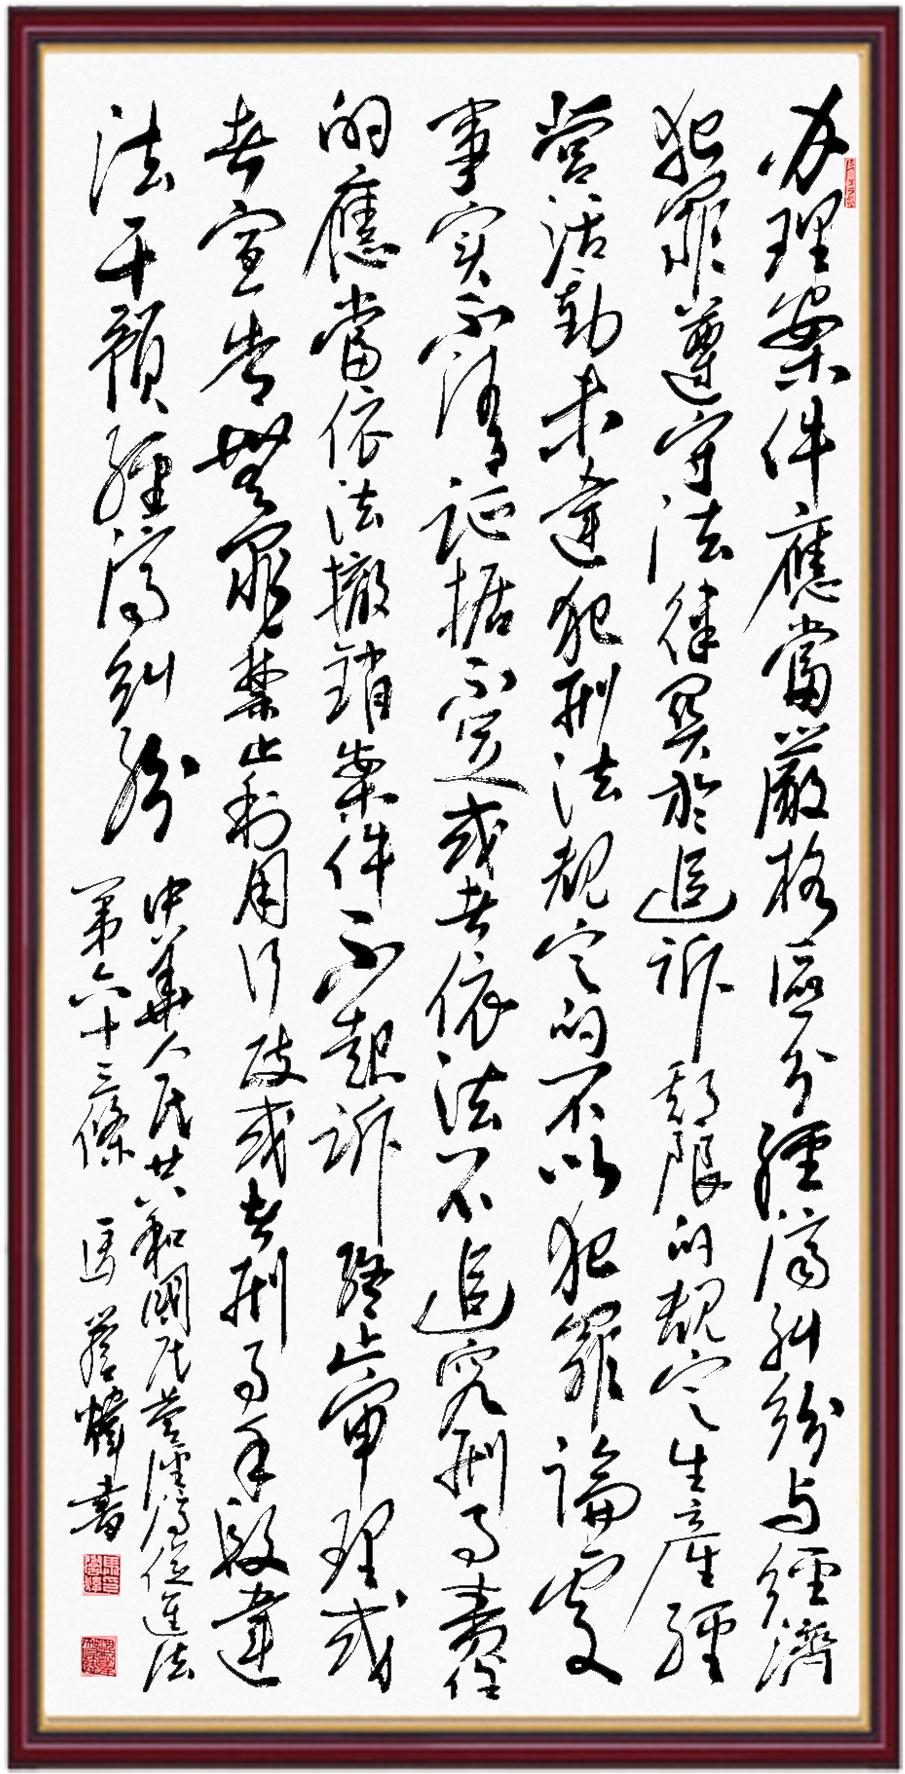 办理案件應當嚴格區分經濟糾紛与經濟
犯罪遵守法律関於追訴期限的規定生産經
營活動未違犯刑法規定的不以犯罪論處
事实不清証据不足或者依法不追究刑事責任
的應當依法撤銷案件不起訴終止審理或
者宣告無罪禁止利用行政或者刑事手段違
法干預經濟糾紛
中華人民共和國民营經濟促進法
第六十三條 馬
書